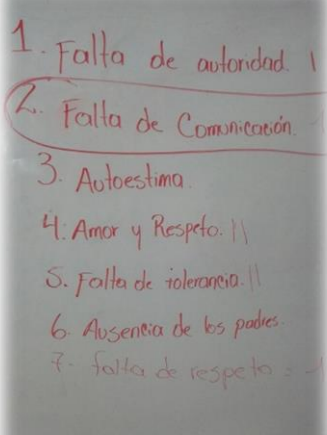 1. Falta de autoridad. |
2. Falta de Comunicación.
3. Autoestima.
4. Amor y Respeto. ||
5. Falta de tolerancia. ||
6. Ausencia de los padres.
7. falta de respeto =